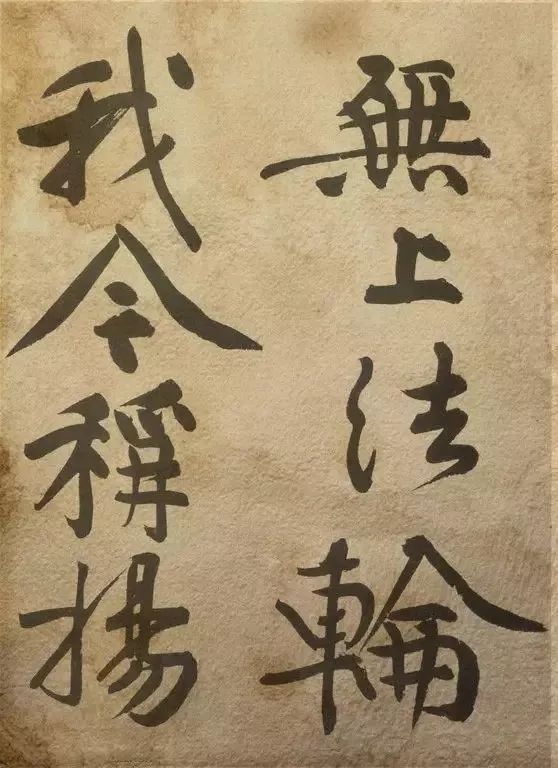 無上法輪
我今稱揚